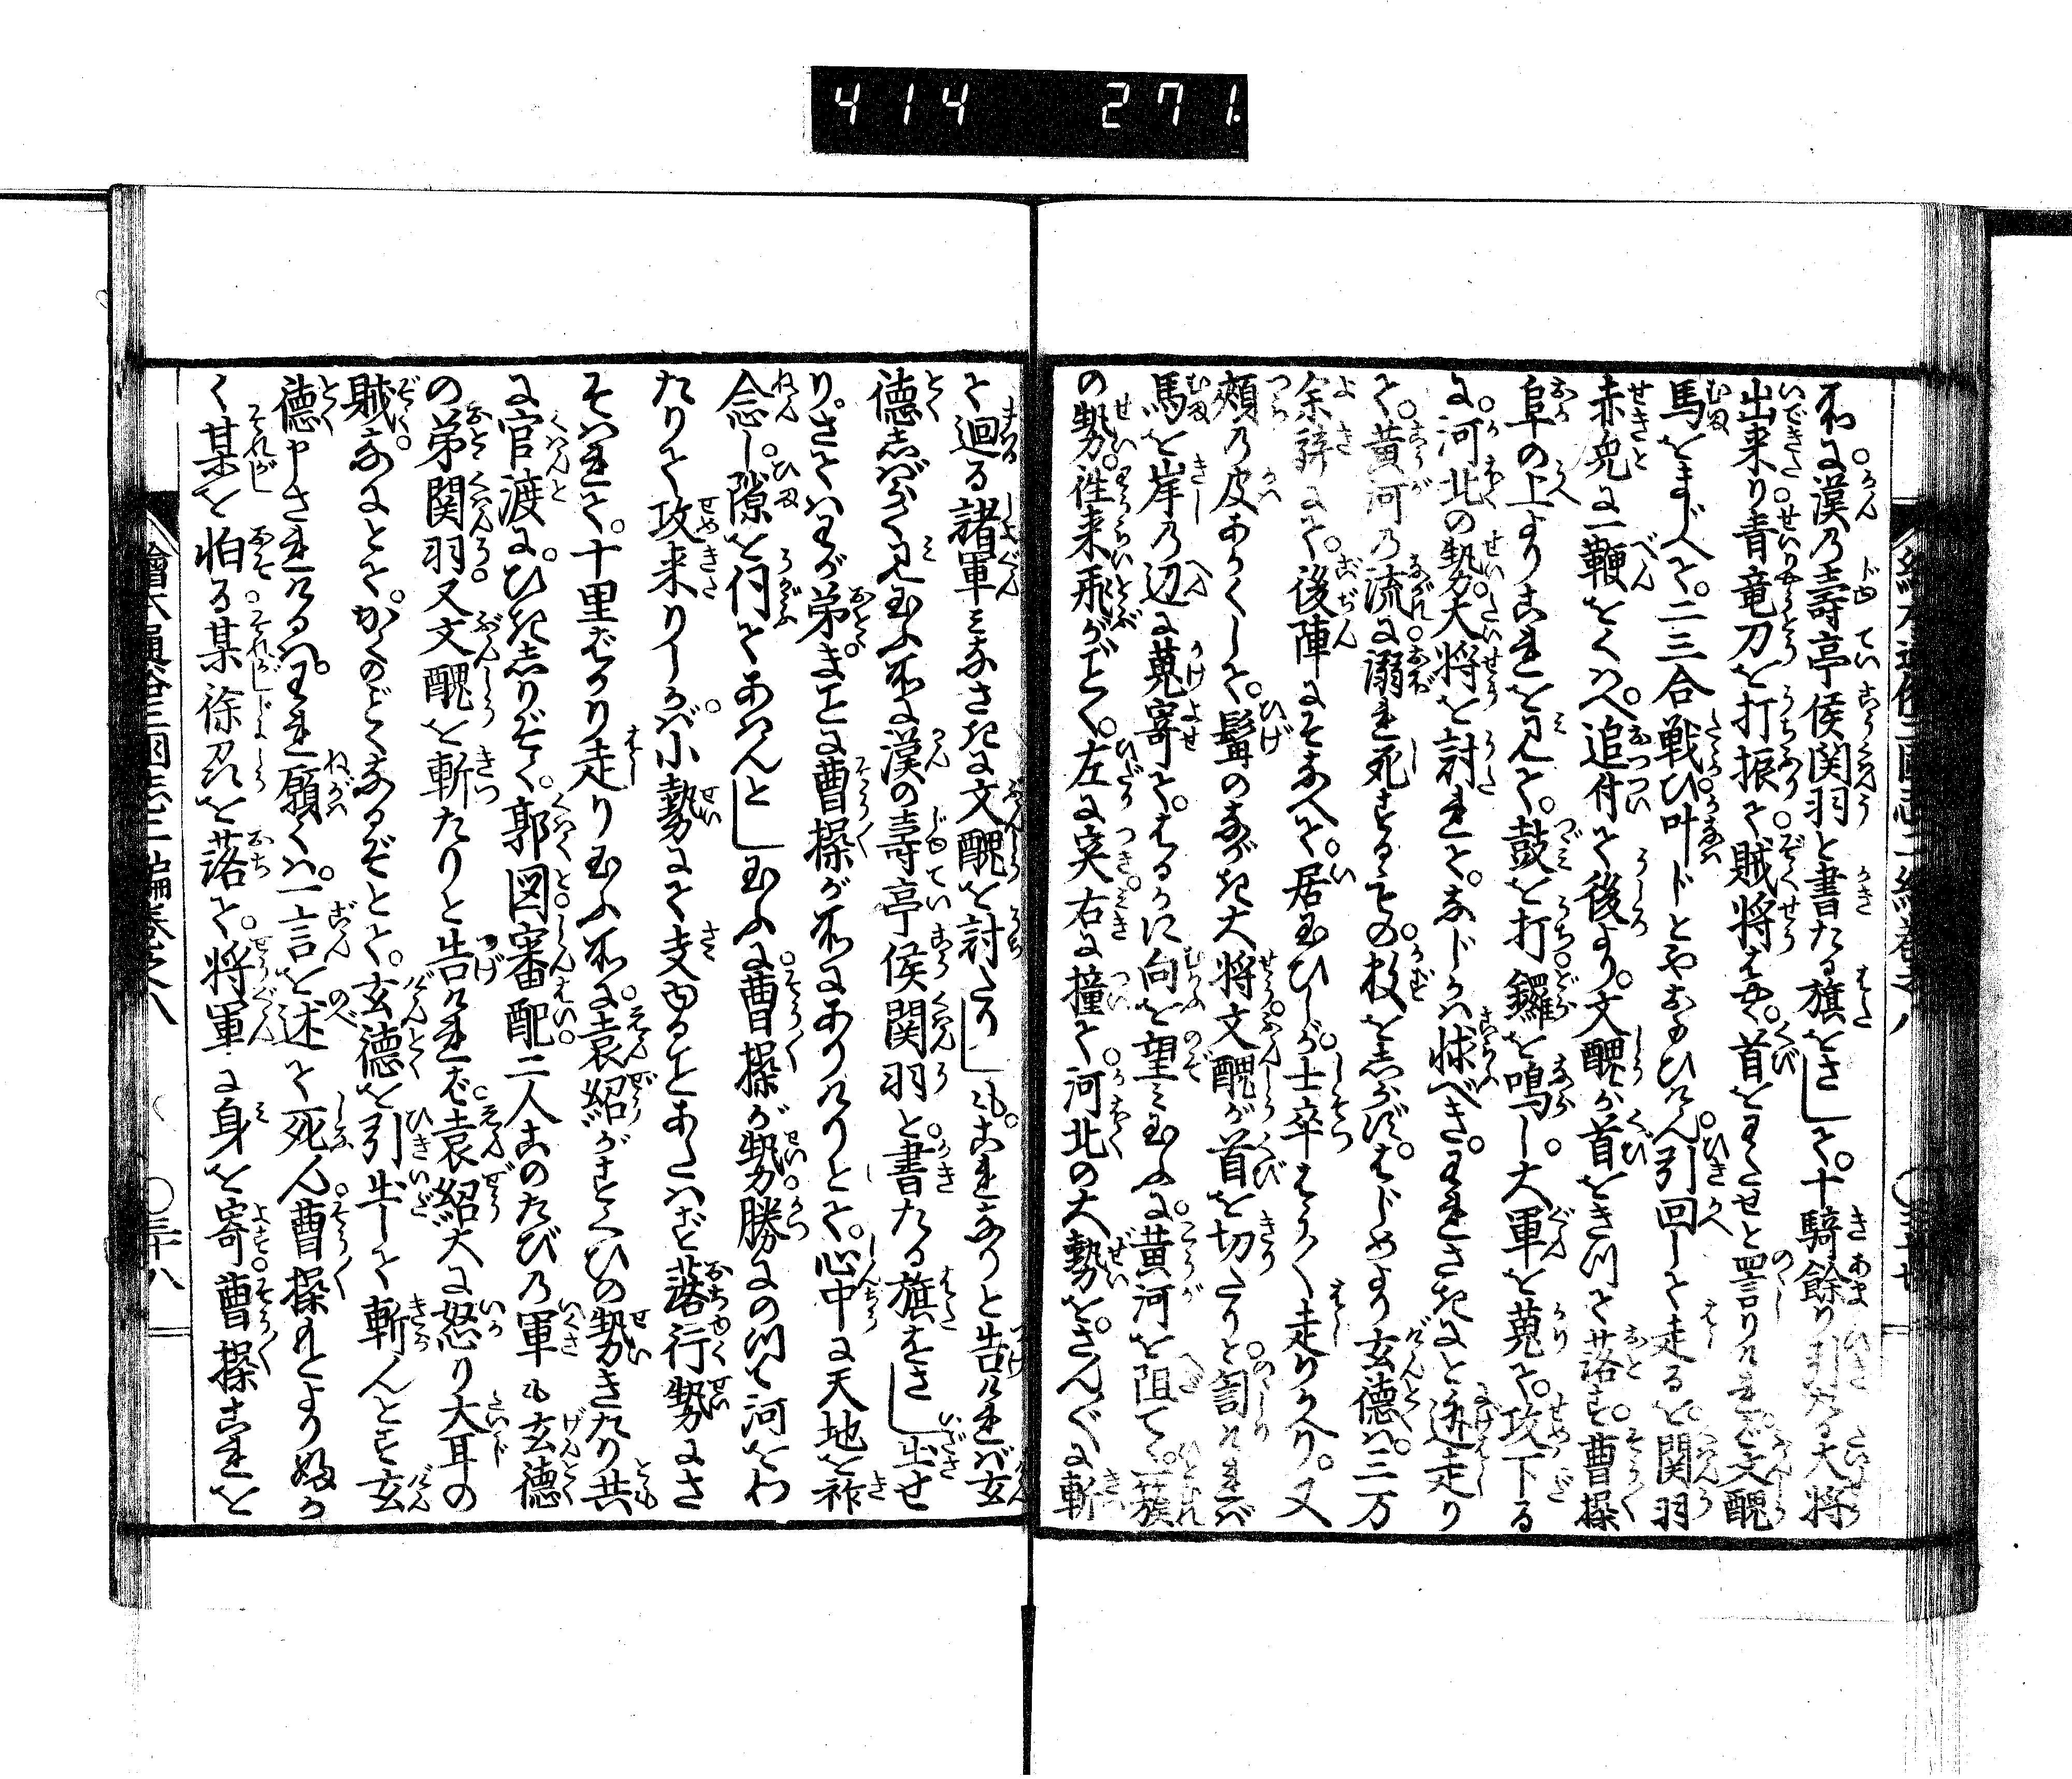 414 271.
所に漢の壽亭侯関羽と書たる旗をさして十騎餘り引たる大将
出来り青竜刀を打振て賊将はやく首をわたせと詈りければ文醜
馬をまじへて二三合戦ひ叶じとやおもひけん引回して走るを関羽
赤兎に一鞭をくはへ追付て後より文醜が首をきつて落す曹操
阜の上よりこれを見て鼓を打鑼を鳴し大軍を駈て攻下る
に河北の勢大将を討れてなじかは怺べきわれさきにと逃走り
て黄河の流に溺れ死するもの数をしらずはじめより玄徳は三万
余騎にて後陣にそなへて居玉ひしが士卒はやく走りかへり又
頬の皮あかくして髯のながき大将文醜が首を切たりと訇ければ
馬を岸の辺に駈寄てはるかに向を望み玉ふに黄河を阻て一簇
の勢往来飛がごとく左に突右に撞て河北の大勢をさんざんに斬
て迴る諸軍みなさきに文醜を討たりしもこれなりと告ければ玄
徳しばらく見玉ふ所に漢の壽亭侯関羽と書たる旗をさし出せ
りさてはわが弟まことに曹操が所にありけりとて心中に天地を祚
念し隙を伺てあはんとし玉ふに曹操が勢勝にのつて河をわ
たりて攻来りしかば小勢にて支ゆることあたはず落行勢にさ
そはれて十里ばかり走り玉ふ所に袁紹がすくひの勢きたり共
に官渡にひきしりぞく郭図審配二人このたびの軍も玄徳
の弟関羽又文醜を斬たりと告ければ袁紹大に怒り大耳の
賊なにとてかくのごとくなるぞとて玄徳を引出して斬んとす玄
徳申されけるはわれ願くは一言を述て死ん曹操もとより妬か
く某を怕る某徐州を落て将軍に身を寄曹操これを
三十八